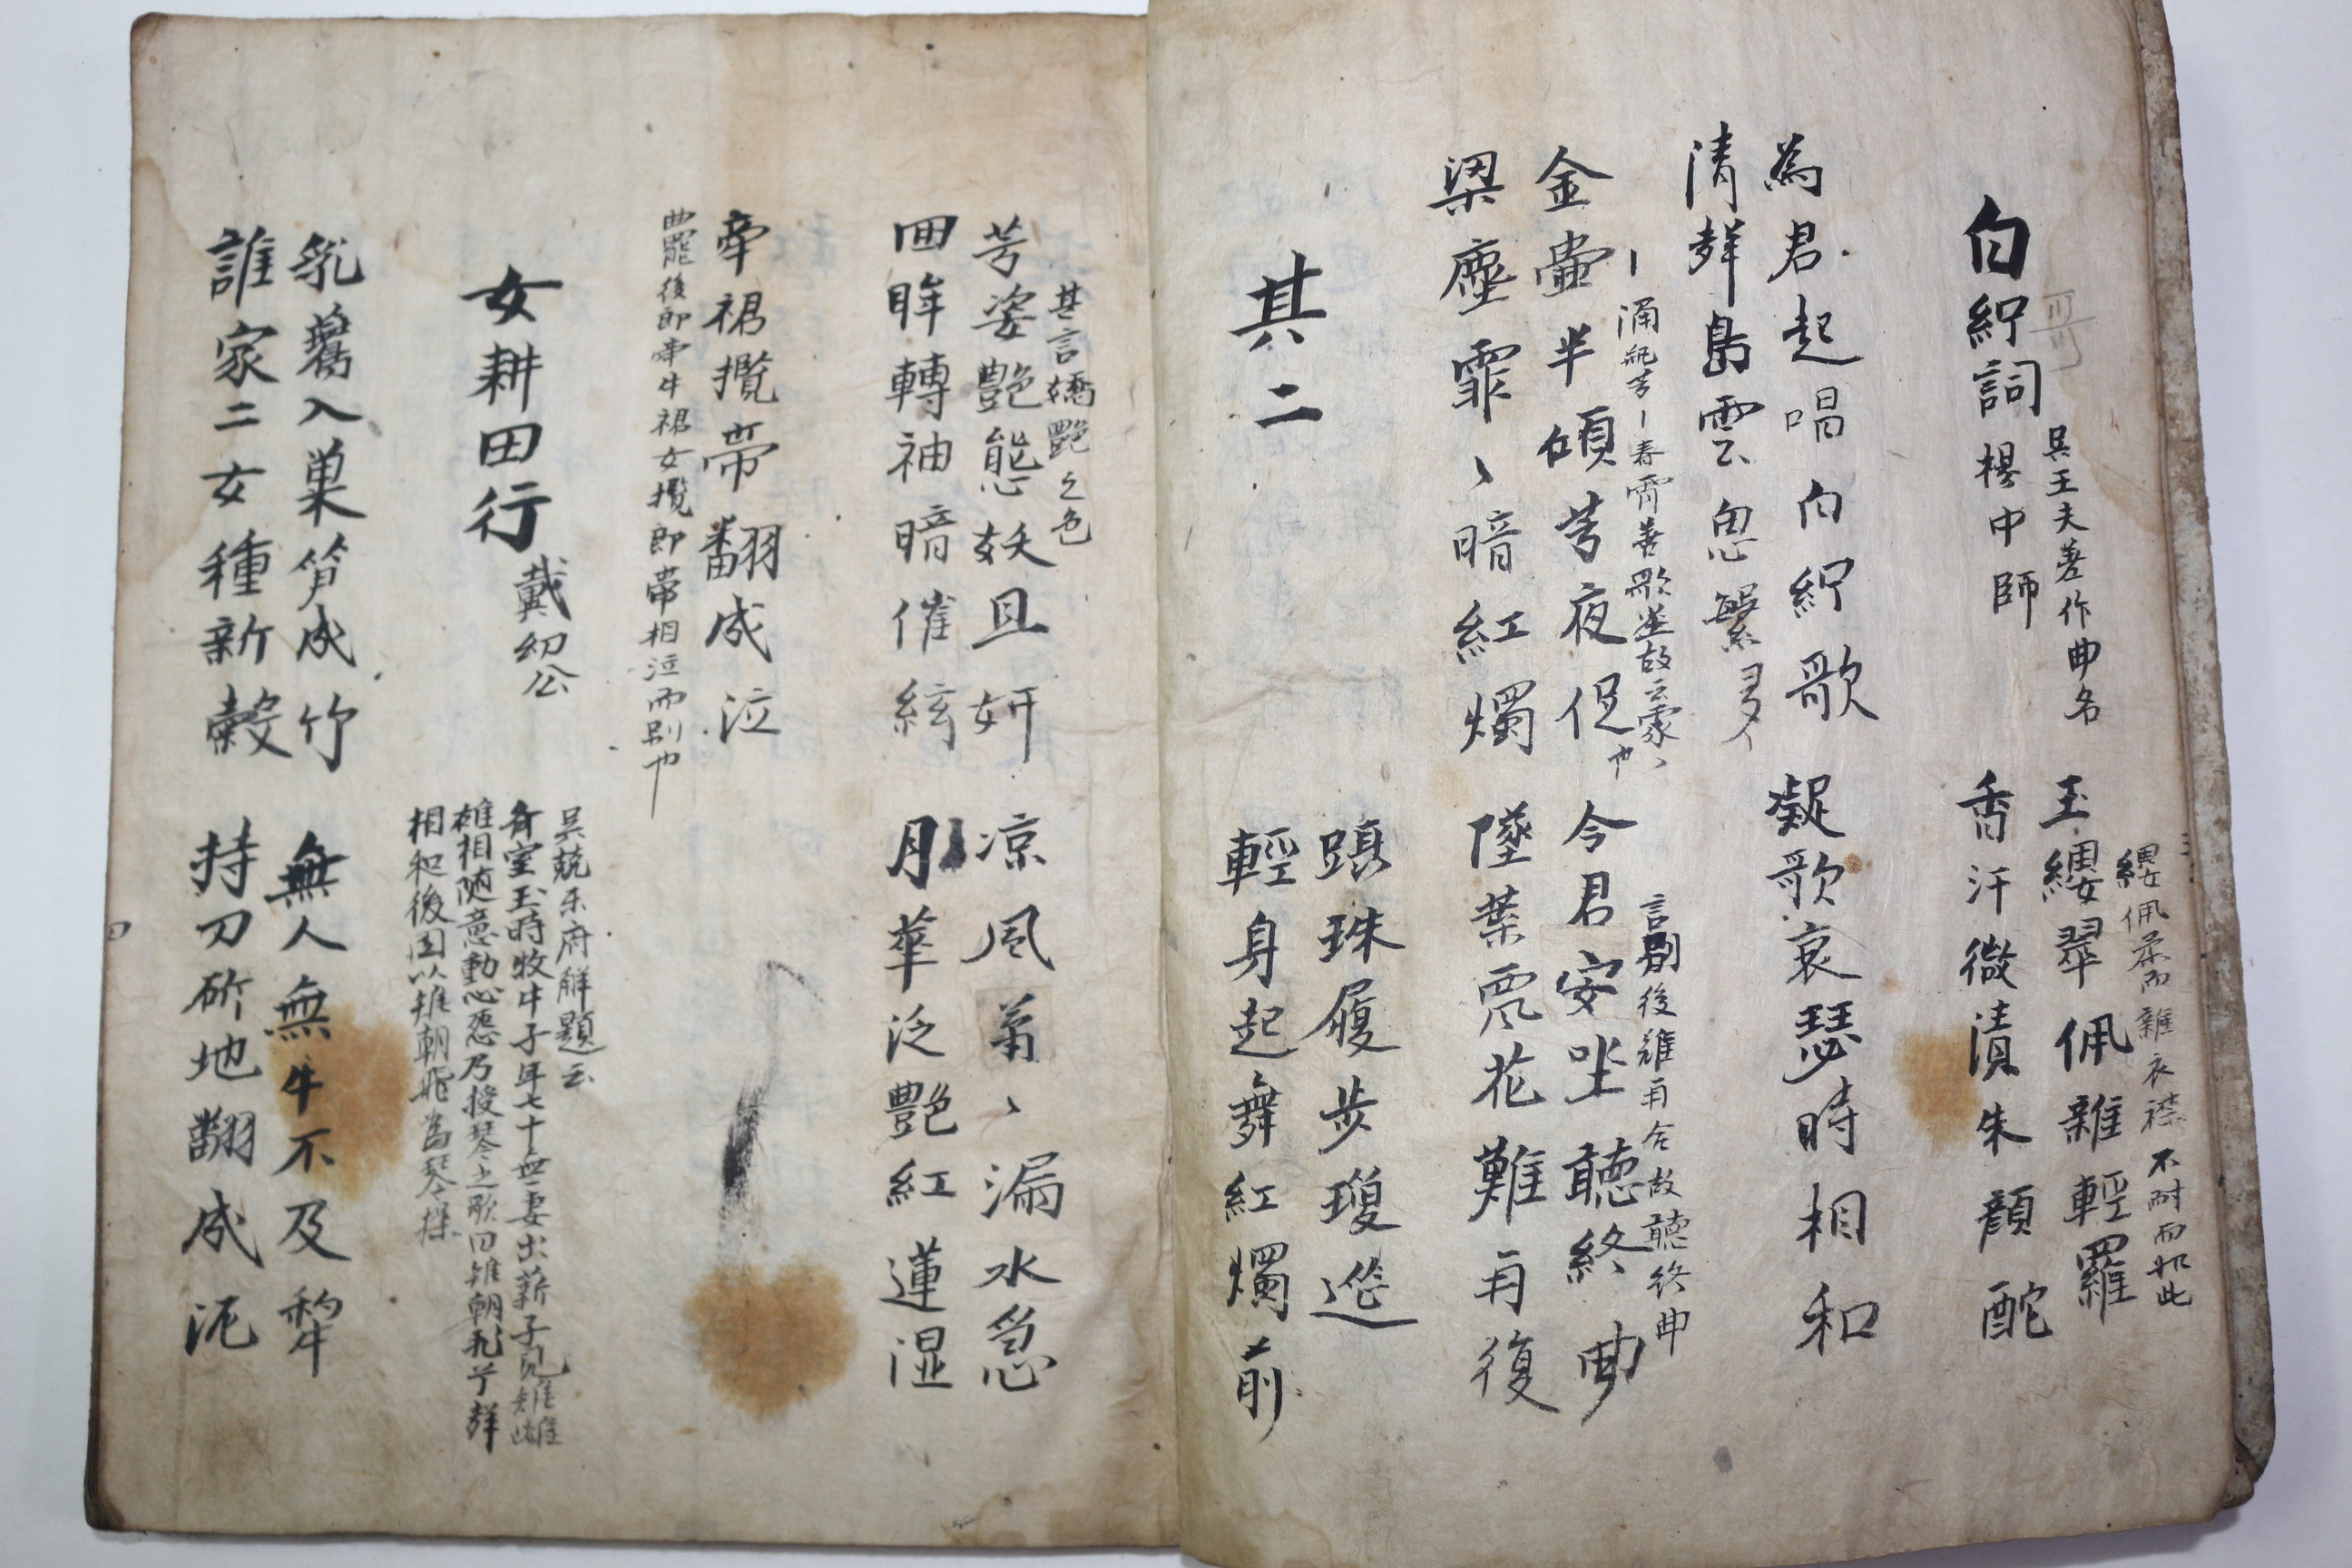 白紵詞 楊中師
吳王夫差作曲名
玉纓翠佩雜輕羅
纓佩柔而雜衣襟不耐而如此
香汗微漬朱顏酡
為君起唱白紵歌 凝歌哀瑟時相和
清聲裊雲思繁多
金壺半傾芳夜促 今君安坐聽終曲
涌瓶芳丨春霄善歌莚故云
言別後雖再合故聽終曲
梁塵霏、暗紅燭 墜葉飄花難再復
躡珠履步瓊筵
輕身起舞紅燭前
其二
其言嬌艷之色
芳姿艷態妖且妍 凉風蕭、漏水急
回眸轉袖暗催絃 月華泛艷紅蓮湿
牽裙攬帶翻成泣
曲罷後郎牽牛裙女攬郎帶相泣而別也
女耕田行 戴幼公
吳兢乐府解題云
有室玉時牧牛子年七十無妻出薪子見雉雌
雄相随意動心怨乃援琴之歌曰雉朝飛兮群
相和後因以雉朝飛為琴操
乳鷰入巢笋成竹 無人無牛不及犂
誰家二女種新穀 持刀斫地翻成泥